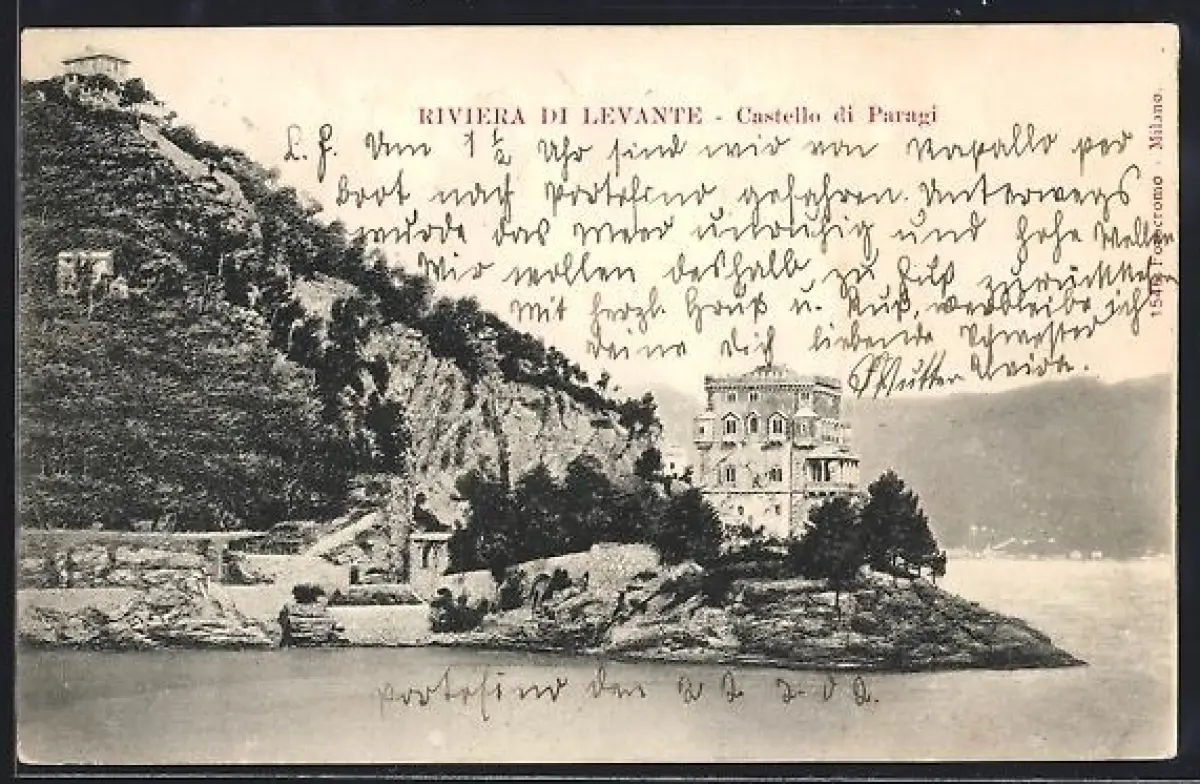 RIVIERA DI LEVANTE - Castello di Paragi
L. F. Um 1 ½ Uhr sind wir von Rapallo per
boot nach Portofino gefahren. Unterwegs
wurde das Meer unruhig und hohe Wellen
Wir wollen deshalb zu Fuß zurück
Mit herzl. Gruß u. Kuß, verbleibe ich
Deine Dich liebende Schwester
Portofino den 22
Fotocromo - Milano.